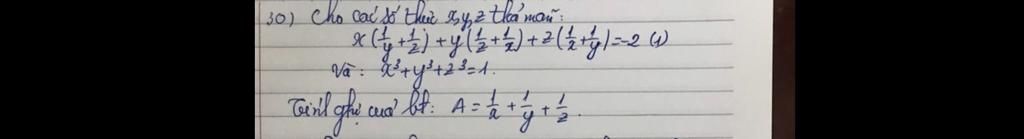 30) Cho các số thực x,y,z thỏa mãn:
x(1/y + 1/z) + y(1/z + 1/x) + z(1/x + 1/y) = -2 (1)
Và: x³ + y³ + z³ = 1.
Tính gtrị của bt: A = 1/x + 1/y + 1/z.